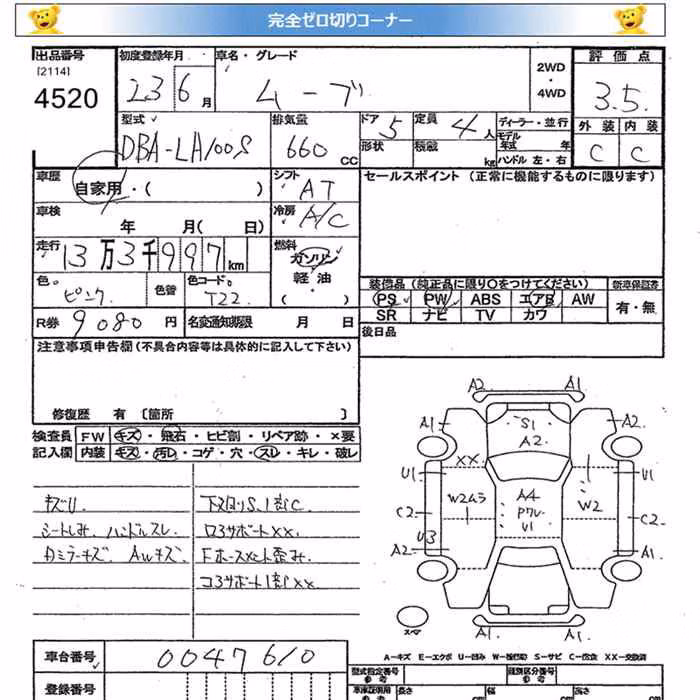 完全ゼロ切りコーナー
出品番号 初度登録年月 車名・グレード 2WD ・ 4WD 評価点
[2114]
4520 23 6月 ムーブ 3.5
型式 DBA-LA100S 排気量 660 CC ドア 5 定員 4人 ディーラー・並行 外装 内装
形状 積載 kg モデル年式 年 ハンドル 左・右 C C
車歴 自家用・( ) シフト AT セールスポイント (正常に機能するものに限ります)
車検 年 月(日) 冷房 A/C
走行 13万3千997km 燃料 ガソリン
軽油
( )
色 ピンク 色替 色コード T22 装備品 (純正品に限り○をつけてください) 新車保証書
PS PW ABS エアB AW 有・無
SR ナビ TV カワ
R券 9080円 名変通知期限 月 日 後日品
注意事項申告欄 (不具合内容等は具体的に記入して下さい)
修復歴 有 [箇所 ]
検査員 FW キズ・飛石・ヒビ割・リペア跡・×要
記入欄 内装 キズ・汚レ・コゲ・穴・スレ・キレ・破レ
キズU 
シートしみ、ハンドルスレ
AWキズ
A2 A1
A1 S1 A2 A2
XX
U1 U1
W2ムラ A4 PクレU1 W2
C2 C2
U3
A2 A1
A1 A1
スペア
A－キズ E－エクボ U－凹み S－サビ C－腐食 XX－交換済
車台番号 0047610 型式指定番号 類別区分番号
登録番号 長さ cm 幅 cm 高さ cm